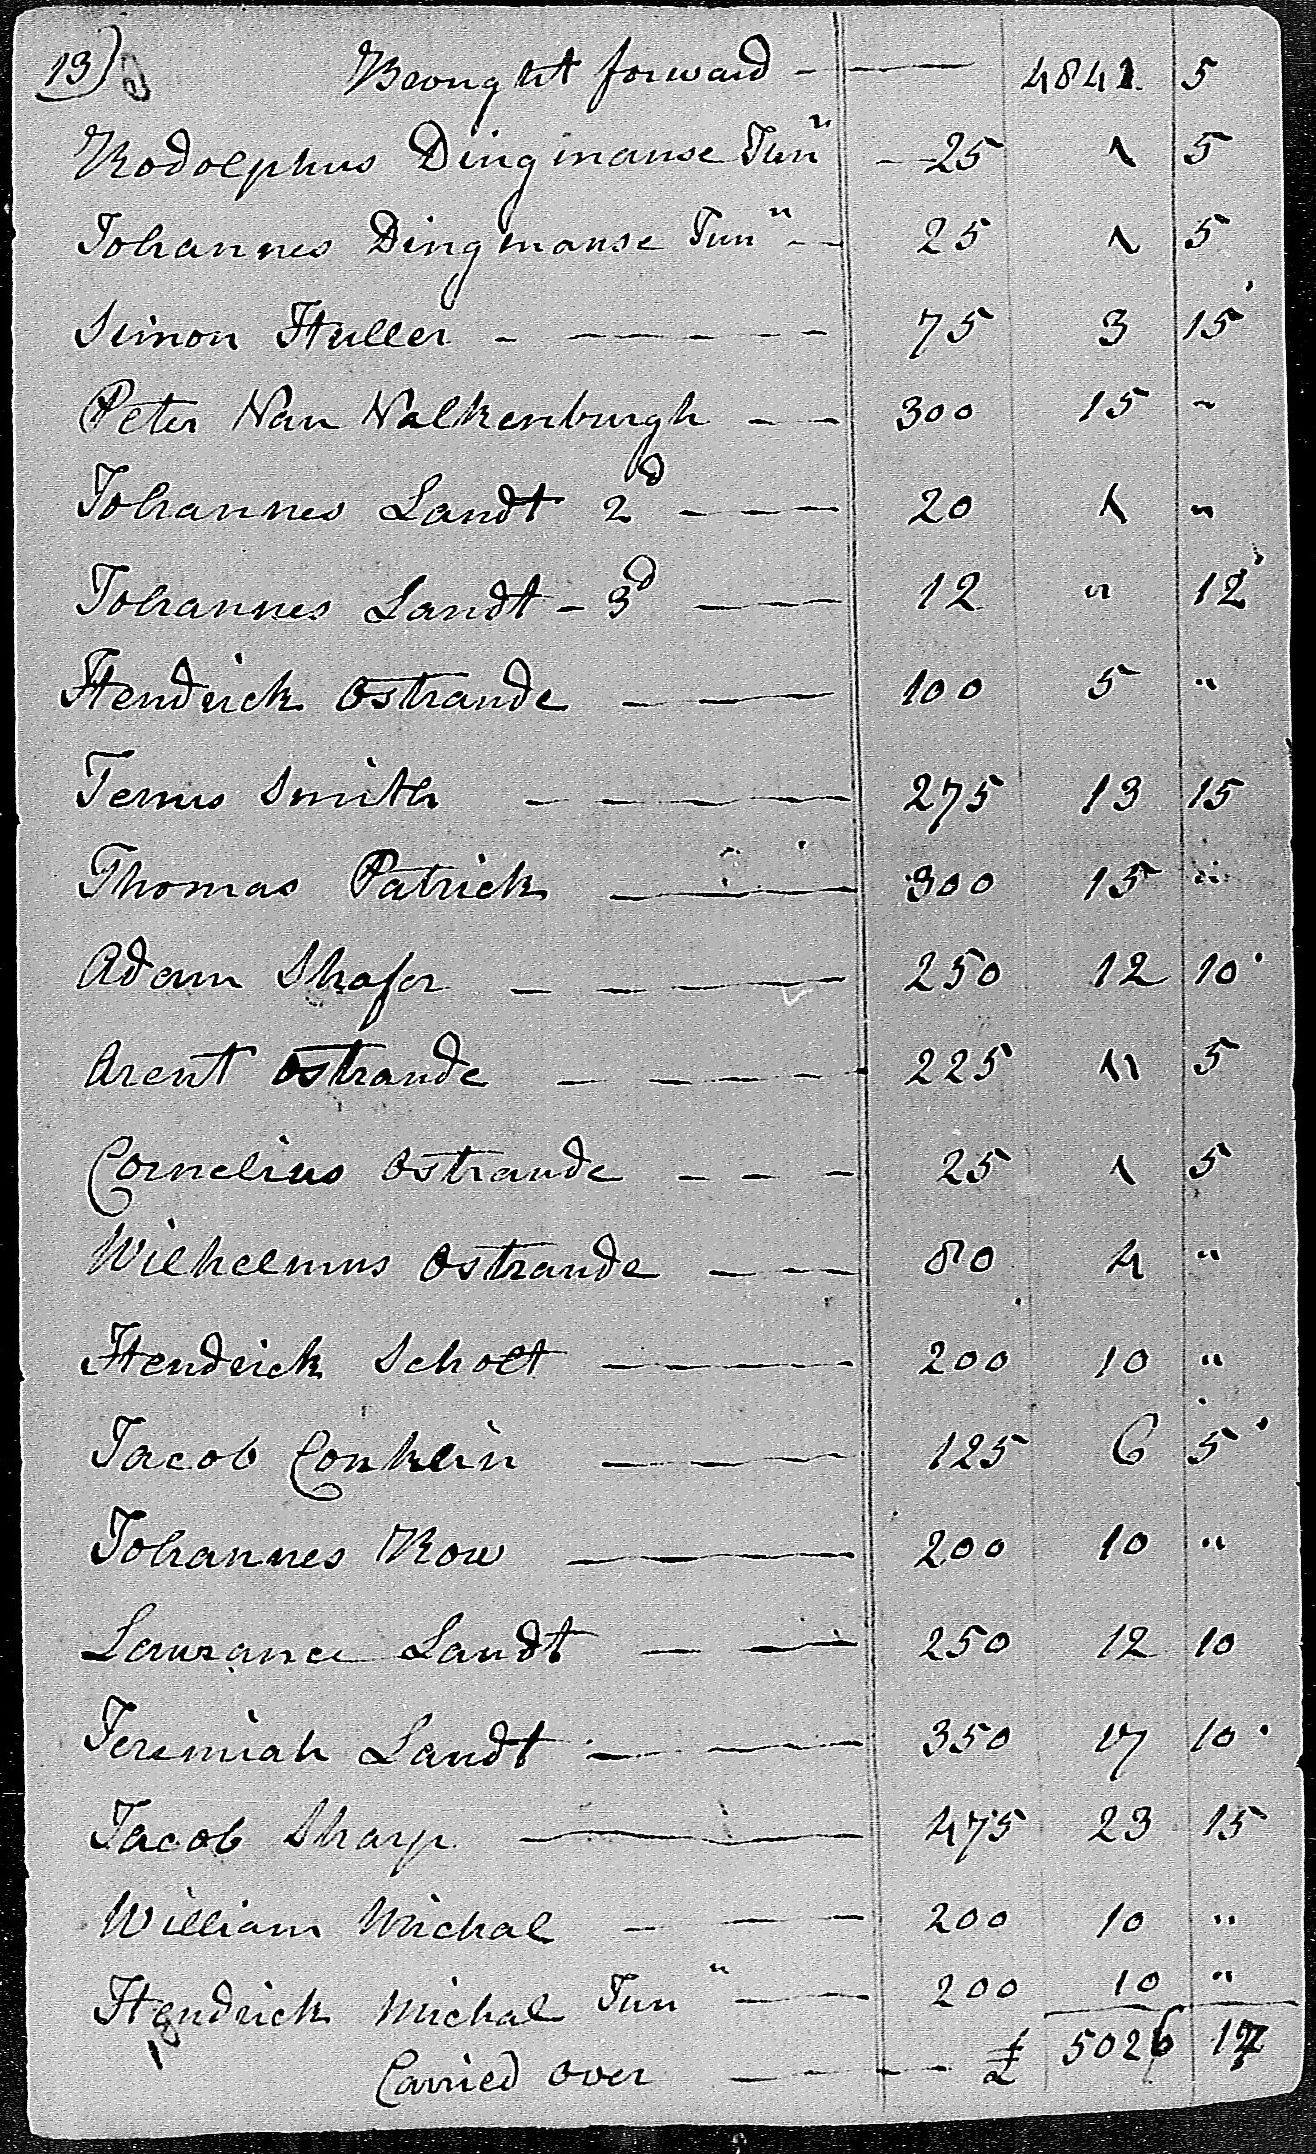 13) Brought forward - — 4841 5
Rodolphus Dingmanse Jun" - — 25 1 5
Johannes Dingmanse Jun" - - 25 1 5
Simon Huller - — - - - 75 3 15
Peter Van Valkenburgh - - - 300 15 "
Johannes Landt 2d - - - 20 1 "
Johannes Landt - 3d - - - 12 " 12
Hendrick Ostrande - — 100 5 "
Temis Smith - - - - 275 13 15
Thomas Patrick — 300 15 "
Adam Shafer - - - - 250 12 10
Arent Ostrande - - - - 225 11 5
Cornelius Ostrande - - - - 25 1 5
Wilhelmus Ostrande - - - 80 4 "
Hendrick Scholt — 200 10 "
Jacob Conklin — 125 6 5
Johannes Row — 200 10 "
Lawrance Landt - — 250 12 10
Jeremiah Landt - - — 350 17 10
Jacob Sharp — 475 23 15
William Michal - - — 200 10 "
Hendrick Michal Jun" - — 200 10 "
Carried over - - - - £ 5026 17